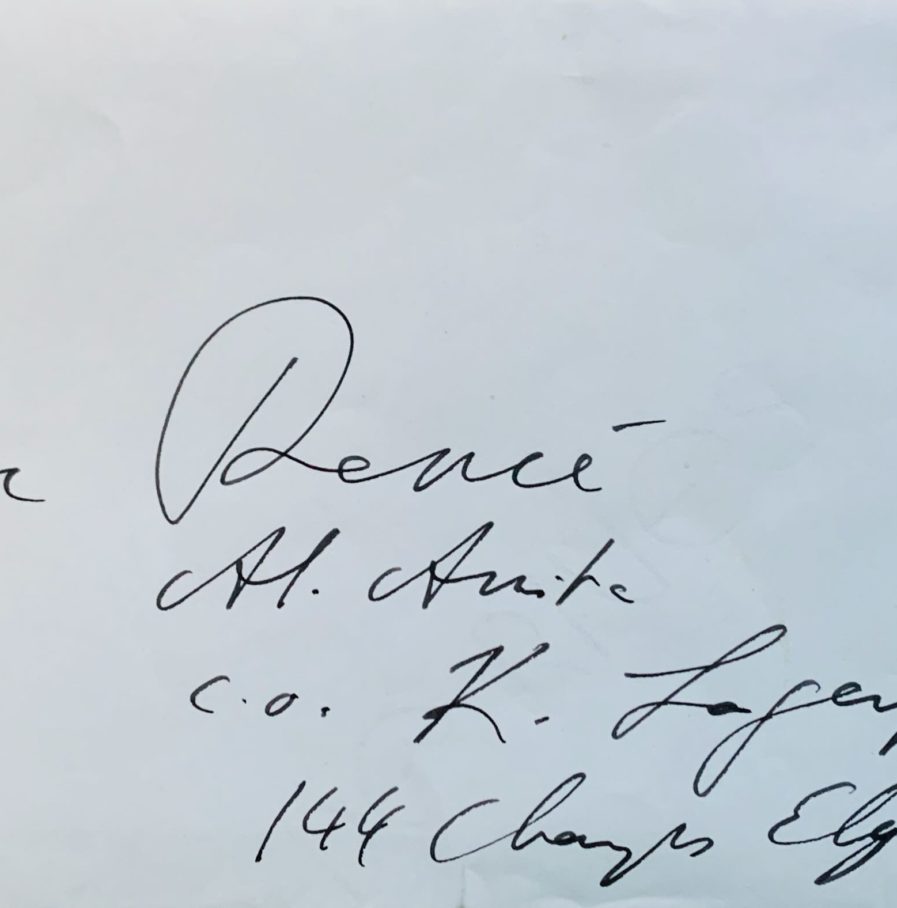 René
Al. Anita
c.o. K. Lager
144 Champs Ely